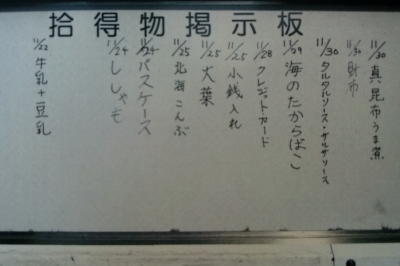 拾得物掲示板
11/30 真昆布うま煮
11/30 財布
11/30 タルタルソース・サルサソース
11/29 海のたからばこ
11/28 クレジットカード
11/25 小銭入れ
11/25 大葉
11/25 北海こんぶ
11/24 パスケース
11/24 ししゃも
11/22 牛乳+豆乳